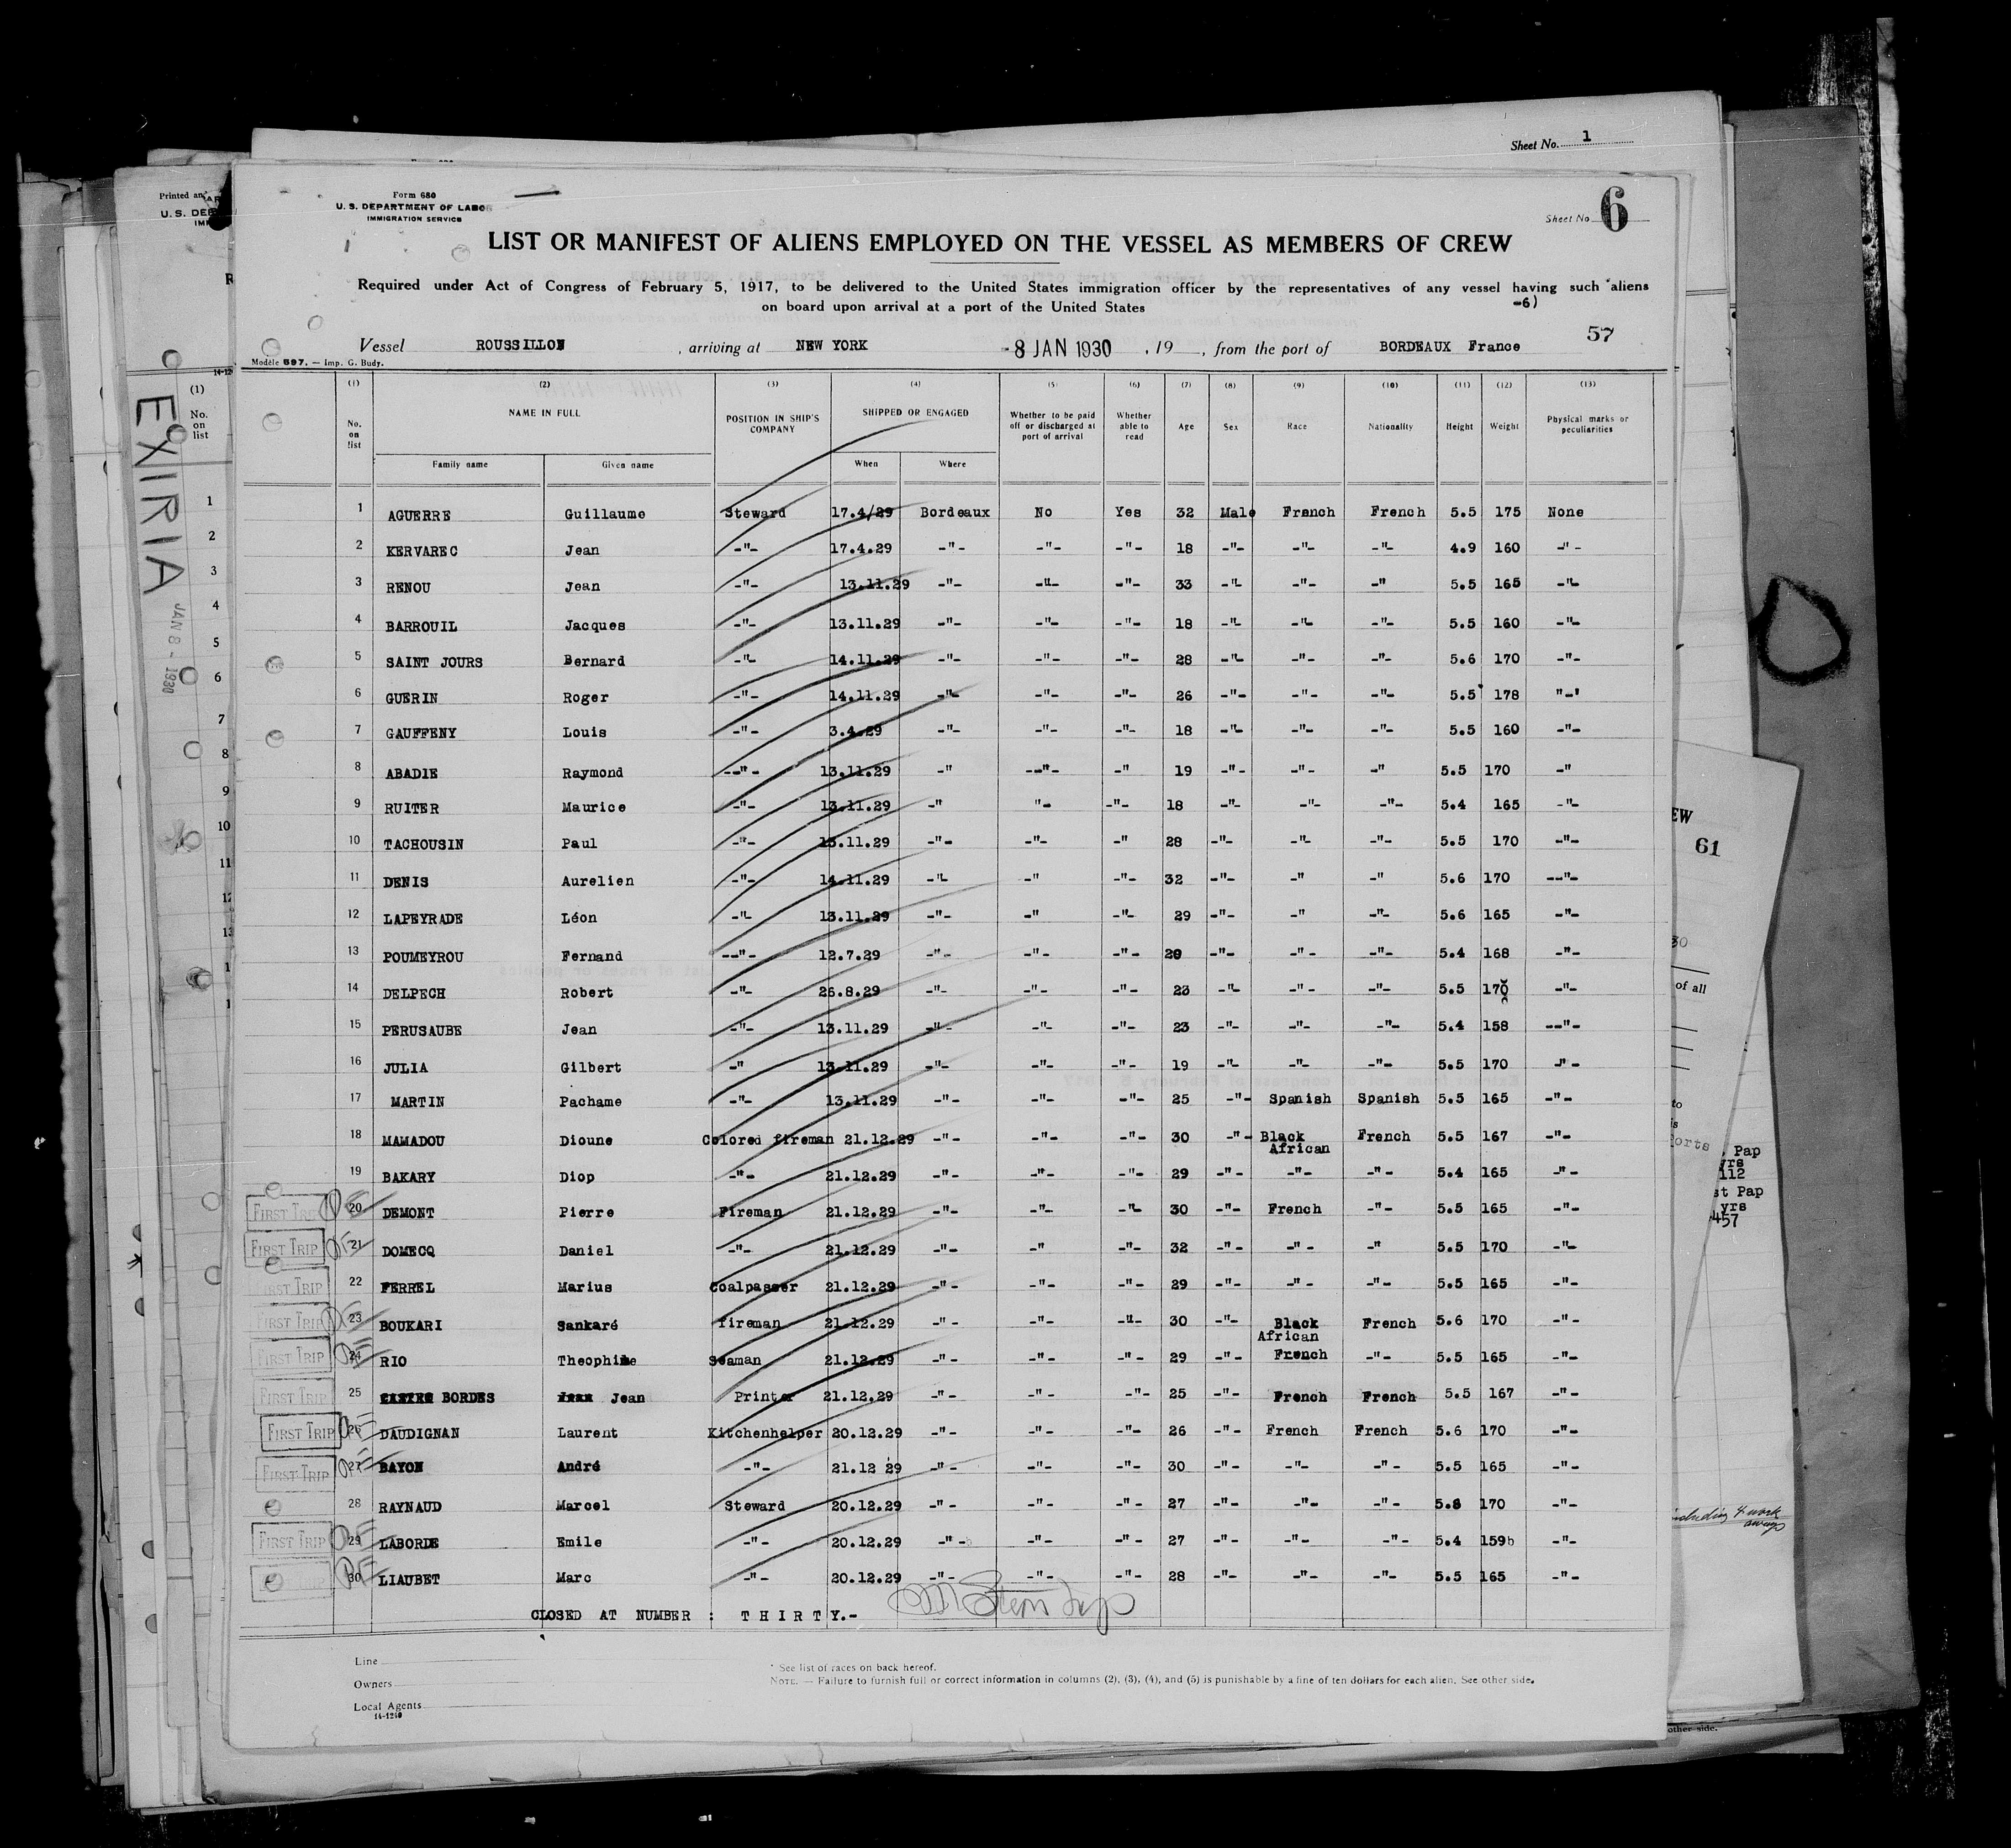 Sheet No. 1
Printed an
U. S. DEP
Form 680
U. S. DEPARTMENT OF LABOR
IMMIGRATION SERVICE
Sheet No 6
LIST OR MANIFEST OF ALIENS EMPLOYED ON THE VESSEL AS MEMBERS OF CREW
Required under Act of Congress of February 5, 1917, to be delivered to the United States immigration officer by the representatives of any vessel having such aliens
on board upon arrival at a port of the United States
-6)
57
Vessel ROUSSILLON , arriving at NEW YORK -8 JAN 1930 , 19 , from the port of BORDEAUX France
Modèle 597. — Imp. G. Budy.
(1) (2) (3) (4) (5) (6) (7) (8) (9) (10) (11) (12) (13)
No. on list NAME IN FULL POSITION IN SHIP'S COMPANY SHIPPED OR ENGAGED Whether to be paid off or discharged at port of arrival Whether able to read Age Sex Race Nationality Height Weight Physical marks or peculiarities
Family name Given name When Where
1 AGUERRE Guillaume Steward 17.4/29 Bordeaux No Yes 32 Male French French 5.5 175 None
2 KERVAREC Jean -"- 17.4.29 -"- -"- -"- 18 -"- -"- -"- 4.9 160 -"-
3 RENOU Jean -"- 13.11.29 -"- -"- -"- 33 -"- -"- -" 5.5 165 -"-
4 BARROUIL Jacques -"- 13.11.29 -"- -"- -"- 18 -"- -"- -"- 5.5 160 -"-
5 SAINT JOURS Bernard -"- 14.11.29 -"- -"- -"- 28 -"- -"- -"- 5.6 170 -"-
6 GUERIN Roger -"- 14.11.29 -"- -"- -"- 26 -"- -"- -"- 5.5 178 "-"
7 GAUFFENY Louis -"- 3.4.29 -"- -"- -"- 18 -"- -"- -"- 5.5 160 -"-
8 ABADIE Raymond --"- 13.11.29 -" --"- -" 19 -"- -"- -" 5.5 170 -"
9 RUITER Maurice -"- 13.11.29 -" "- -"- 18 -"- -"- -"- 5.4 165 -"-
10 TACHOUSIN Paul -"- 13.11.29 -"- -"- -" 28 -"- -"- -"- 5.5 170 -"-
11 DENIS Aurelien -"- 14.11.29 -"- -" -"- 32 -"- -" -" 5.6 170 --"-
12 LAPEYRADE Léon -"- 13.11.29 -"- -" -"- 29 -"- -" -"- 5.6 165 -"-
13 POUMEYROU Fernand --"- 12.7.29 -"- -"- -"- 20 -"- -"- -"- 5.4 168 -"-
14 DELPECH Robert -"- 26.8.29 -"- -"- -"- 23 -"- -"- -"- 5.5 170 -"-
15 PERUSAUBE Jean -"- 13.11.29 -"- -"- -"- 23 -"- -"- -"- 5.4 158 --"-
16 JULIA Gilbert -" 13.11.29 -"- -"- -"- 19 -"- -"- -"- 5.5 170 -"-
17 MARTIN Pachame -"- 13.11.29 -"- -"- -"- 25 -"- Spanish Spanish 5.5 165 -"-
18 MAMADOU Dioune Colored fireman 21.12.29 -"- -"- -"- 30 -"- Black African French 5.5 167 -"-
19 BAKARY Diop -"- 21.12.29 -"- -"- -"- 29 -"- -"- -"- 5.4 165 -"-
FIRST TRIP 20 DEMONT Pierre Fireman 21.12.29 -"- -"- -"- 30 -"- French -"- 5.5 165 -"-
FIRST TRIP 21 DOMECQ Daniel -"- 21.12.29 -"- -" -"- 32 -"- -"- -" 5.5 170 -"-
FIRST TRIP 22 FERREL Marius Coalpasser 21.12.29 -"- -"- -"- 29 -"- -"- -"- 5.5 165 -"-
FIRST TRIP 23 BOUKARI Sankaré fireman 21.12.29 -"- -"- -"- 30 -"- Black African French 5.6 170 -"-
FIRST TRIP 24 RIO Theophile Seaman 21.12.29 -"- -"- -"- 29 -"- French -"- 5.5 165 -"-
FIRST TRIP 25 BORDES Jean Jean Printer 21.12.29 -"- -"- -"- 25 -"- French French 5.5 167 -"-
FIRST TRIP 26 DAUDIGNAN Laurent Kitchenhelper 20.12.29 -"- -"- -"- 26 -"- French French 5.6 170 -"-
FIRST TRIP 27 BAYON André -"- 21.12 29 -"- -"- -"- 30 -"- -"- -"- 5.5 165 -"-
28 RAYNAUD Marcel Steward 20.12.29 -"- -"- -"- 27 -"- -"- -"- 5.8 170 -"-
FIRST TRIP 29 LABORDE Emile -"- 20.12.29 -"- -"- -"- 27 -"- -"- -"- 5.4 159 -"-
30 LIAUBET Marc -"- 20.12.29 -"- -"- -"- 28 -"- -"- -"- 5.5 165 -"-
CLOSED AT NUMBER : THIRTY.-
Line
Owners
Local Agents
14-1240
* See list of races on back hereof.
NOTE. — Failure to furnish full or correct information in columns (2), (3), (4), and (5) is punishable by a fine of ten dollars for each alien. See other side.
14-12
(1)
No. on list
EXIRIA
JAN 8 - 1930
1
2
3
4
5
6
7
8
9
10
11
EW
61
of all
to
Pap
yrs
112
st Pap
yrs
457
including 4 work
aways
other side.